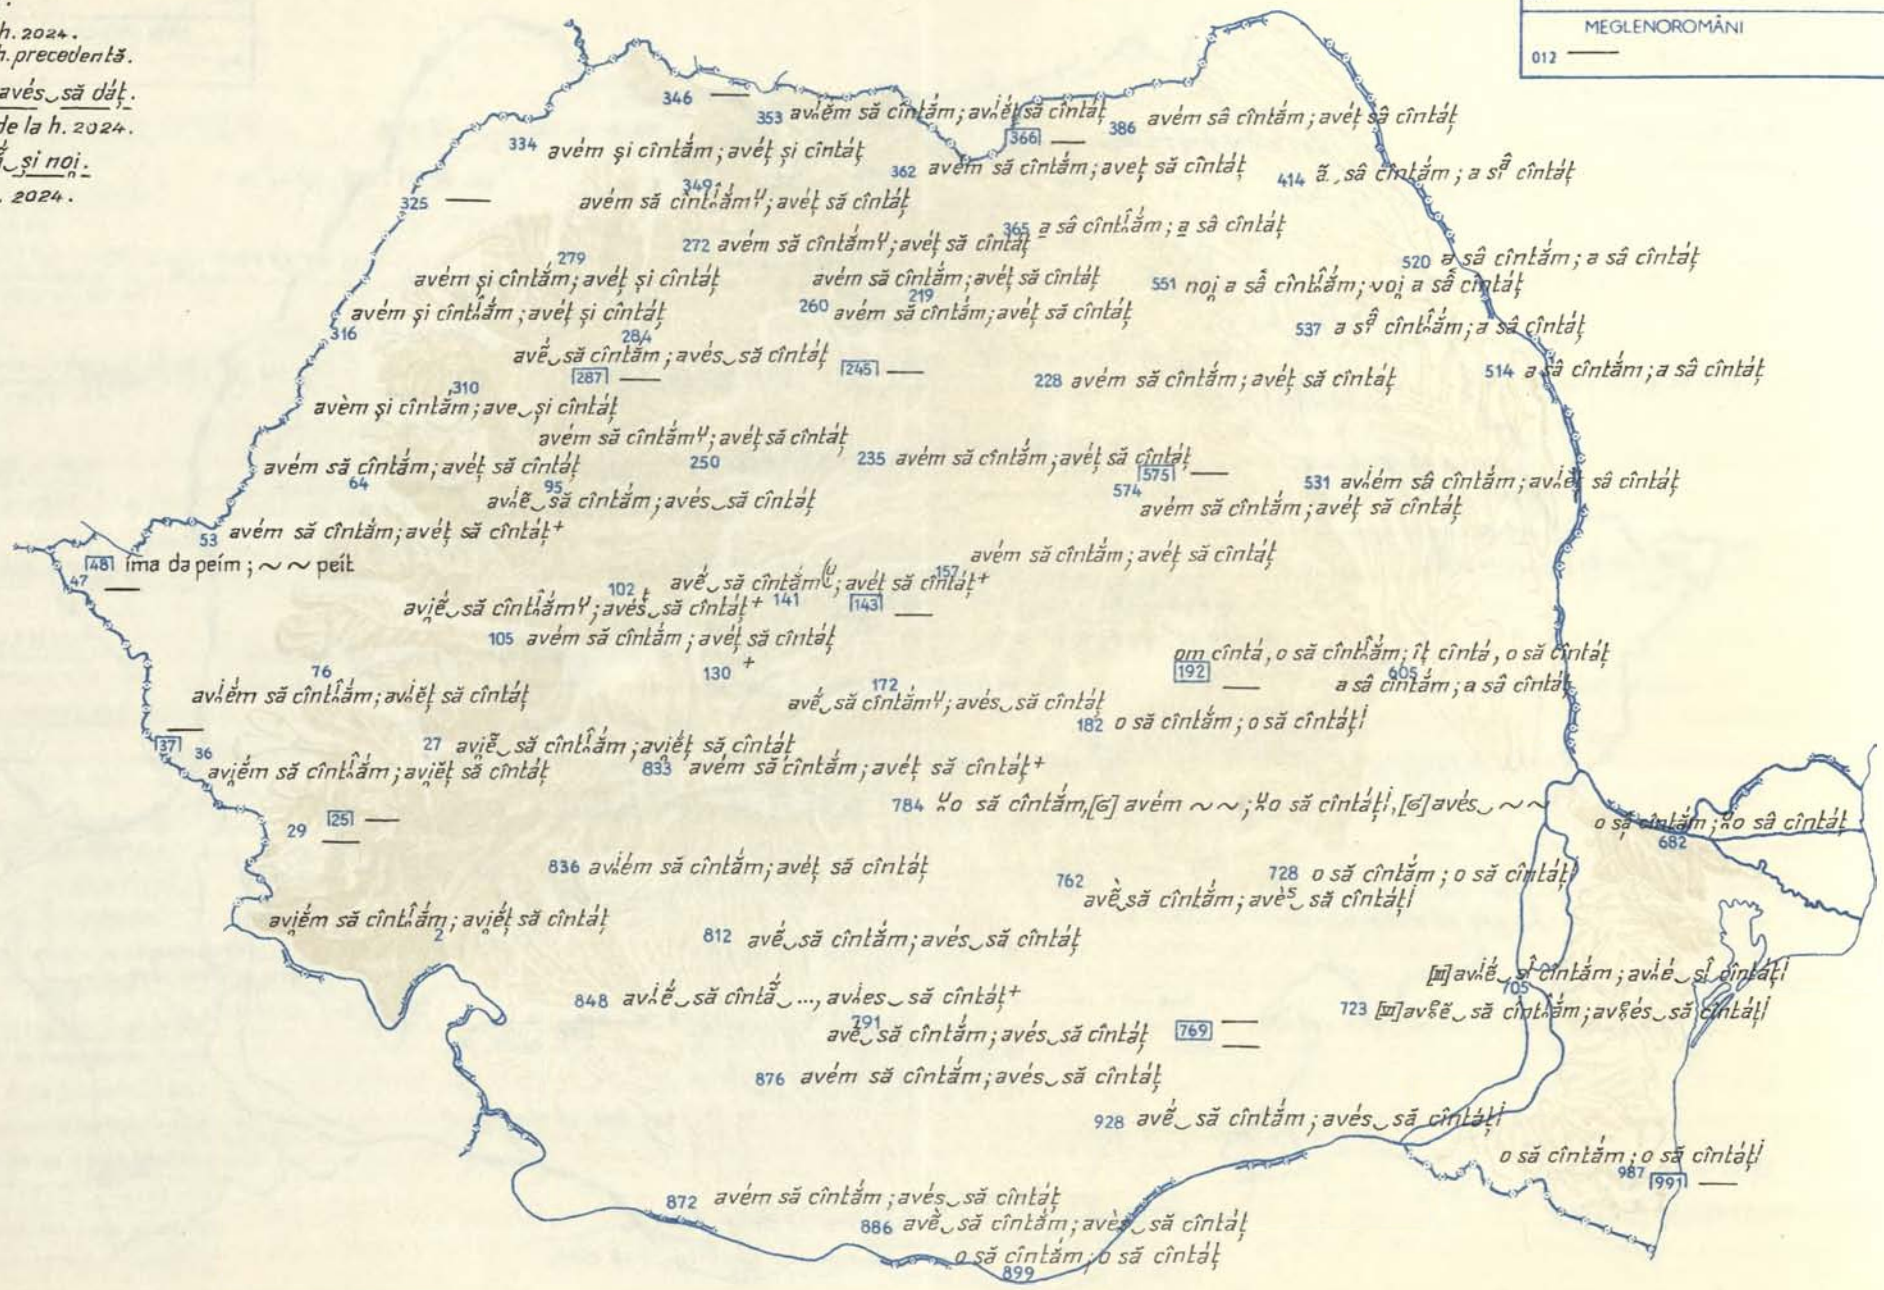 h. 2024.
h. precedentă.
avés‿să dáț.
de la h. 2024.
‿și noi̯.
. 2024.
MEGLENOROMÂNI
012 —
346 —
353 avi̯ĕ́m să cîntắm; avi̯ĕ́ț să cîntáț
366 —
386 avém sâ cîntắm; avéț sâ cîntáț
334 avém și cîntắm; avéț și cîntáț
362 avém să cîntắm; aveț să cîntáț
414 ã‿sâ cîntắm; a sâ cîntáț
349
325 —
avém să cîntắm; avéț să cîntáț
365 a sâ cîntắm; a sâ cîntáț
272 avém să cîntắm; avéț să cîntáț
279
520 a sâ cîntắm; a sâ cîntáț
avém și cîntắm; avéț și cîntáț
avém să cîntắm; avéț să cîntáț
219
551 noi̯ a sấ cîntắm; voi̯ a sấ cîntáț
avém și cîntắm; avéț și cîntáț
316
260 avém să cîntắm; avéț să cîntáț
537 a sâ cîntắm; a sâ cîntáț
284
avḗ‿să cîntắm; avés‿să cîntáț
287 —
245 —
228 avém să cîntắm; avéț să cîntáț
514 a sâ cîntắm; a sâ cîntáț
310
avèm și cîntắm; ave‿și cîntáț
avém să cîntắm; avéț să cîntáț
250
avém să cîntắm; avéț să cîntáț
64
235 avém să cîntắm; avéț să cîntáț
575 —
95
avi̯ẽ‿să cîntắm; avés‿să cîntáț
574
avém să cîntắm; avéț să cîntáț
531 avi̯ém sâ cîntắm; avi̯ĕ́ț sâ cîntáț
53 avém să cîntắm; avéț să cîntáț+
48 íma da peím; ~ ~ peít
47 —
avém să cîntắm; avéț să cîntáț
157
avḗ‿să cîntắm; avéț să cîntáț+
141
143 —
102
avi̯ḗ‿să cîntắm; avés‿să cîntáț+
105 avém să cîntắm; avéț să cîntáț
130 +
om cîntá, o să cîntắm; îț cîntá, o să cîntáț
192 —
605
a sâ cîntắm; a sâ cîntáț
76
avi̯ĕ́m să cîntắm; avi̯ĕ́ț să cîntáț
172
avḗ‿să cîntắm; avés‿să cîntáț
182 o să cîntắm; o să cîntáț
37 —
36
avi̯ĕ́m să cîntắm; avi̯ĕ́ț să cîntáț
27 avi̯ḗ‿să cîntắm; avi̯ĕ́ț să cîntáț
833 avém să cîntắm; avéț să cîntáț+
784 o să cîntắm, [G] avém ~ ~; o să cîntáț, [G] avés‿~ ~
25 —
29 —
o să cîntắm; o să cîntáț
682
836 avi̯ém să cîntắm; avéț să cîntáț
728 o să cîntắm; o să cîntáț
762
avè‿să cîntắm; avès‿să cîntáț
avi̯ĕ́m să cîntắm; avi̯ĕ́ț să cîntáț
2
812 avḗ‿să cîntắm; avés‿să cîntáț
[III] avi̯ḗ‿sî cîntắm; avi̯é‿sî cîntáț
705
848 avi̯ḗ‿să cîntắ‿..., avi̯es‿să cîntáț+
723 să cîntắm; să cîntáț
791
avḗ‿să cîntắm; avés‿să cîntáț
769 —
876 avém să cîntắm; avés‿să cîntáț
928 avḗ‿să cîntắm; avés‿să cîntáț
o să cîntắm; o să cîntáț
987
991 —
872 avém să cîntắm; avés‿să cîntáț
886 avè‿să cîntắm; avès‿să cîntáț
o să cîntắm; o să cîntáț
899